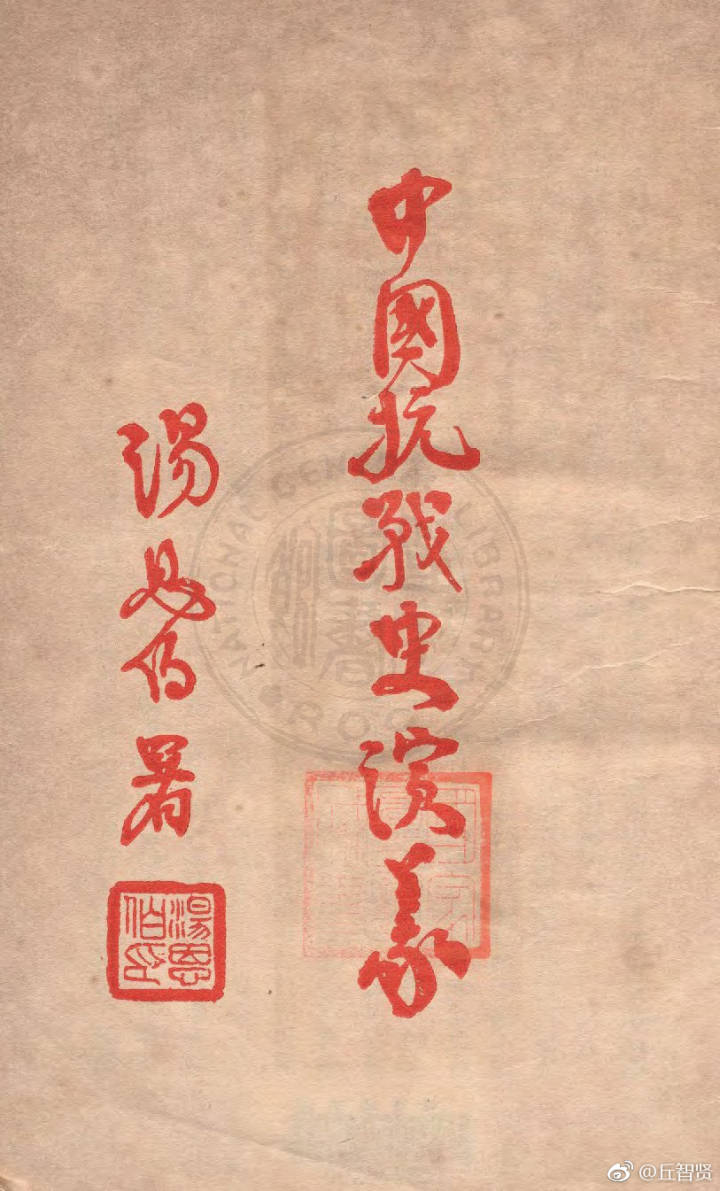 中國抗戰史演義
湯恩伯署
湯恩
伯印
NATIONAL CENTRAL LIBRARY
ROC
@丘智贤